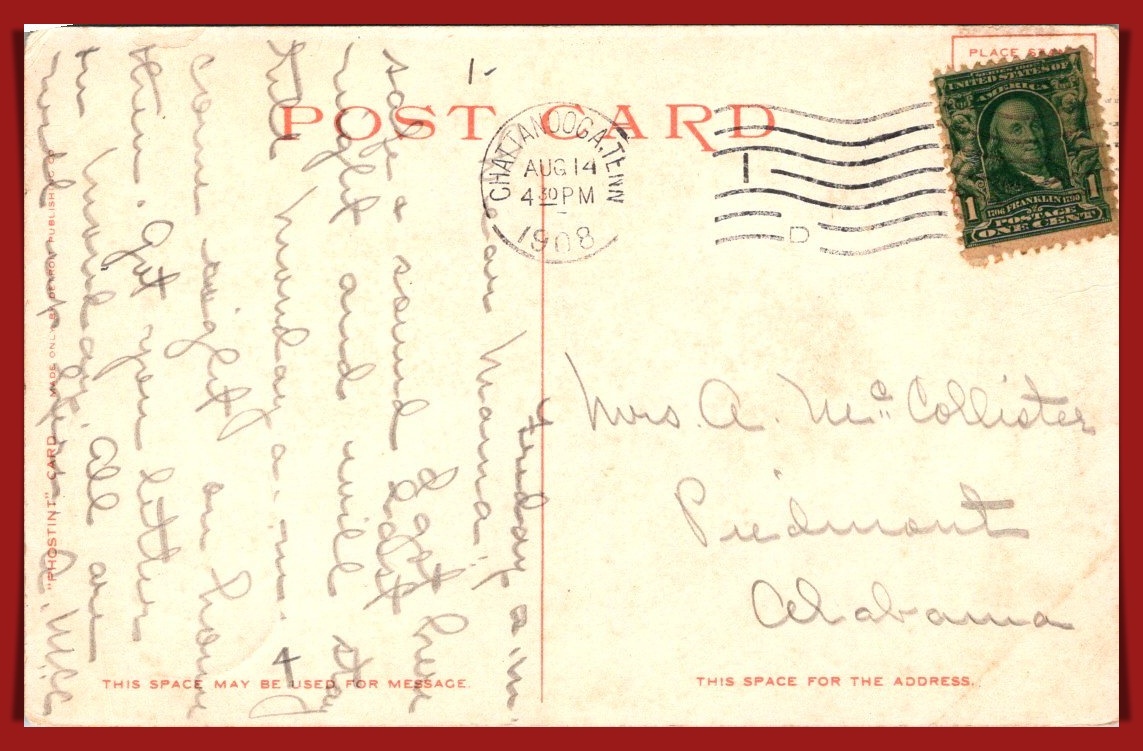 PLACE STAMP
POST CARD
CHATTANOOGA, TENN.
AUG 14
4 30 PM
1908
D
SERIES 1902
UNITED STATES OF
AMERICA
1706 FRANKLIN 1790
1 POSTAGE 1
ONE CENT
1-
Friday a.m.
Dear Mama: I got here
safe & sound last
night and will stay
till Monday a.m. &
come right on home
then. Got your letter
in All are
much
4
Mrs. A. McCollister
Piedmont
Alabama
THIS SPACE MAY BE USED FOR MESSAGE.
THIS SPACE FOR THE ADDRESS.
"PHOSTINT" CARD MADE ONLY BY DETROIT PUBLISHING CO.